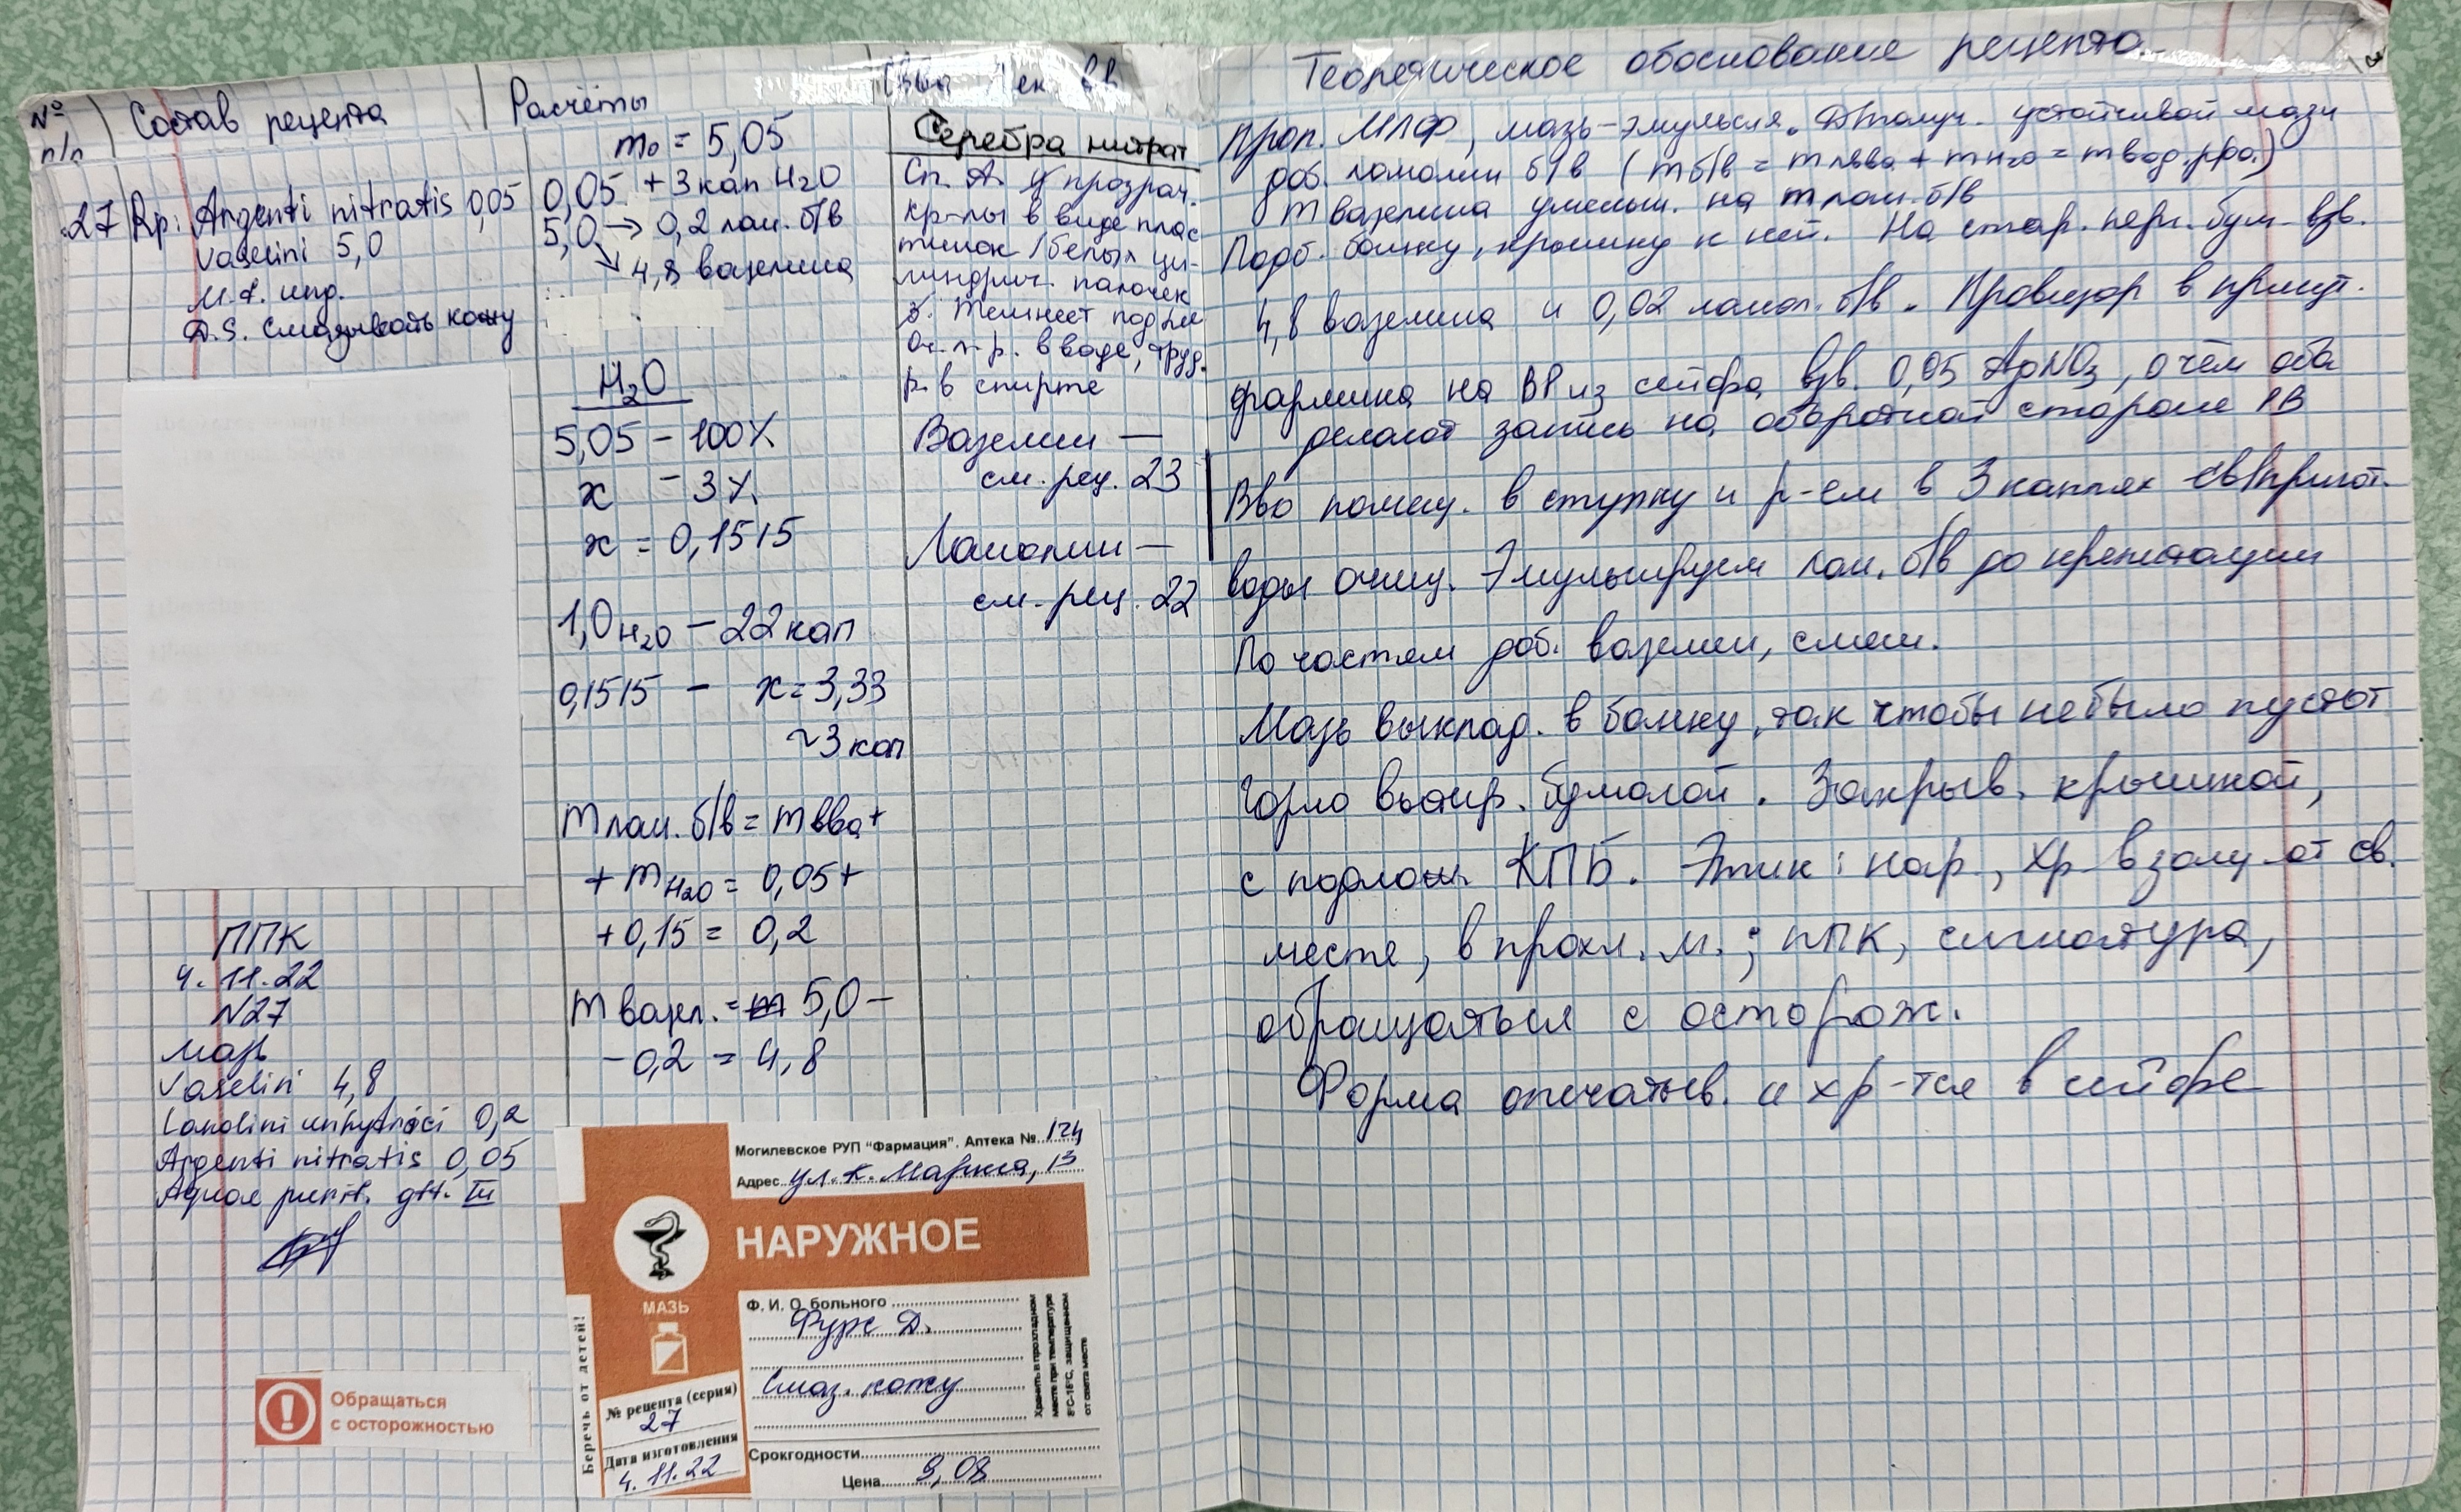 № п/п
Состав рецепта
Расчёты
Теоретическое обоснование рецепта
27 Rp: Argenti nitratis 0,05
Vaselini 5,0
M.f. ung.
D.S. Смазывать кожу
ППК
4.11.22
N27
мазь
Vaselini 4,8
Lanolini anhydrici 0,2
Argenti nitratis 0,05
Aquae purif. gtt. III
Обращаться
с осторожностью
m₀ = 5,05
0,05 + 3 кап H₂O
5,0 → 0,2 лан. б/в
↘ 4,8 вазелина
H₂O
5,05 – 100%
x – 3%
x = 0,1515
1,0 H₂O – 22 кап
0,1515 – x = 3,33
~3 кап
m лан. б/в = m вва +
+ m H₂O = 0,05 +
+ 0,15 = 0,2
m вазел. = 5,0 –
– 0,2 = 4,8
Серебра нитрат
Сп. А. прозрач.
кр-лы в виде плас
тинок / белых ци-
линдрич. палочек
Темнеет под
Оч. л. р. в воде, труд.
р. в спирте
Вазелин —
см. рец. 23
Ланолин —
см. рец. 22
Могилевское РУП "Фармация". Аптека № 124
Адрес ул. К. Маркса, 13
НАРУЖНОЕ
МАЗЬ
Беречь от детей!
№ рецепта (серия)
27
Дата изготовления
4.11.22
Ф. И. О. больного
Фурс Д.
Смаз. кожу
Срок годности
Цена 9,08
Хранить в прохладном
месте при температуре
8°С-15°С, защищенном
от света месте
Проп. МЛФ, мазь-эмульсия. Дт получ. устойчивой мази
доб. ланолин б/в (m б/в = m лвва + m H₂O = m вод. фа.)
m вазелина уменьш. на m лан. б/в
Подб. банку, крышку к ней. На стар. перг. бум. взв.
4,8 вазелина и 0,02 ланол. б/в. Провизор в присут.
фармица на ВР из сейфа взв. 0,05 AgNO₃, о чём оба
делают запись на оборотной стороне РВ
Вво помещ. в ступку и р-ем в 3 каплях св/пригот.
воды очищ. Эмульгируем лан. б/в до крепитации
По частям доб. вазелин, смеш.
Мазь выклад. в банку, так чтобы не было пустот
Горло вытир. бумагой. Закрыв. крышкой,
с подлож. КПБ. Этик: нар, хр в защ. от св.
месте, в прохл. м.; ППК, сигнатура,
обращаться с осторож.
Форма опечатыв. и хр-тся в сейфе